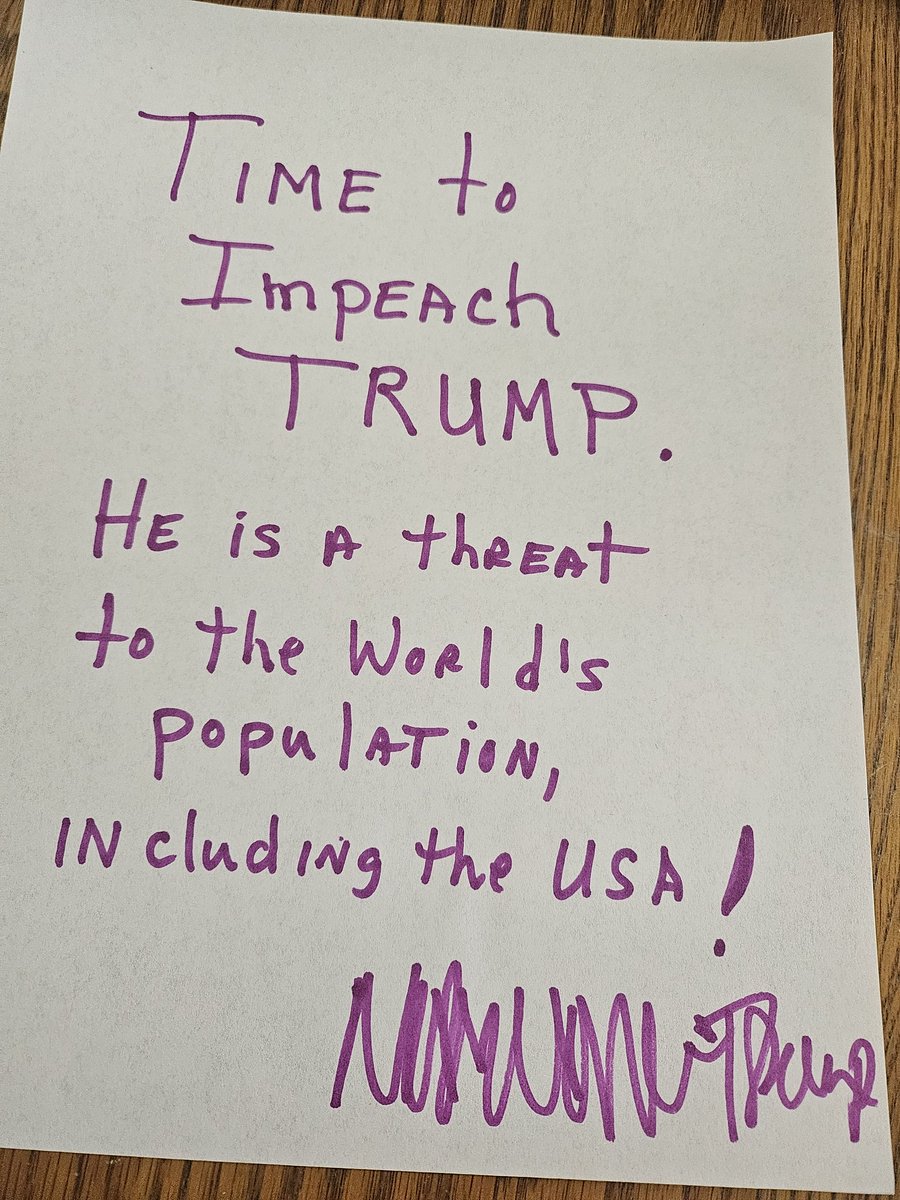 TIME to
ImpEAch
TRUMP.
HE is A thREAt
to the World's
populATiON,
INcludINg the USA!
Trump